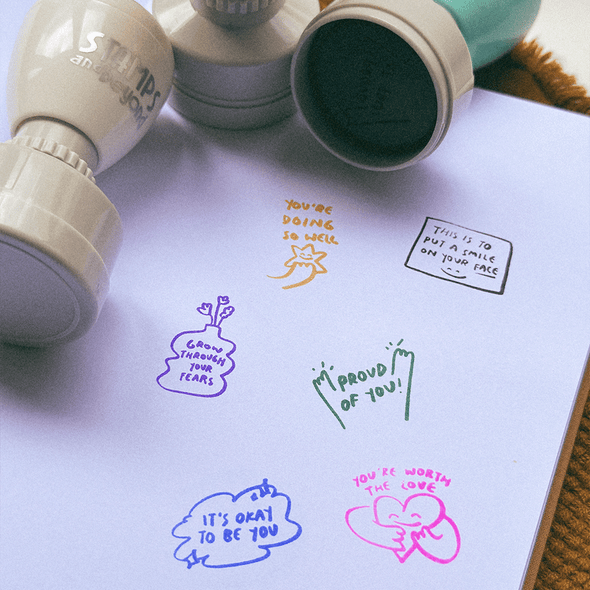 STAMPS
andbeyond
YOU'RE
DOING
SO WELL
THIS IS TO
PUT A SMILE
ON YOUR FACE
GROW
THROUGH
YOUR
TEARS
PROUD
OF YOU!
YOU'RE WORTH
THE LOVE
IT'S OKAY
TO BE YOU